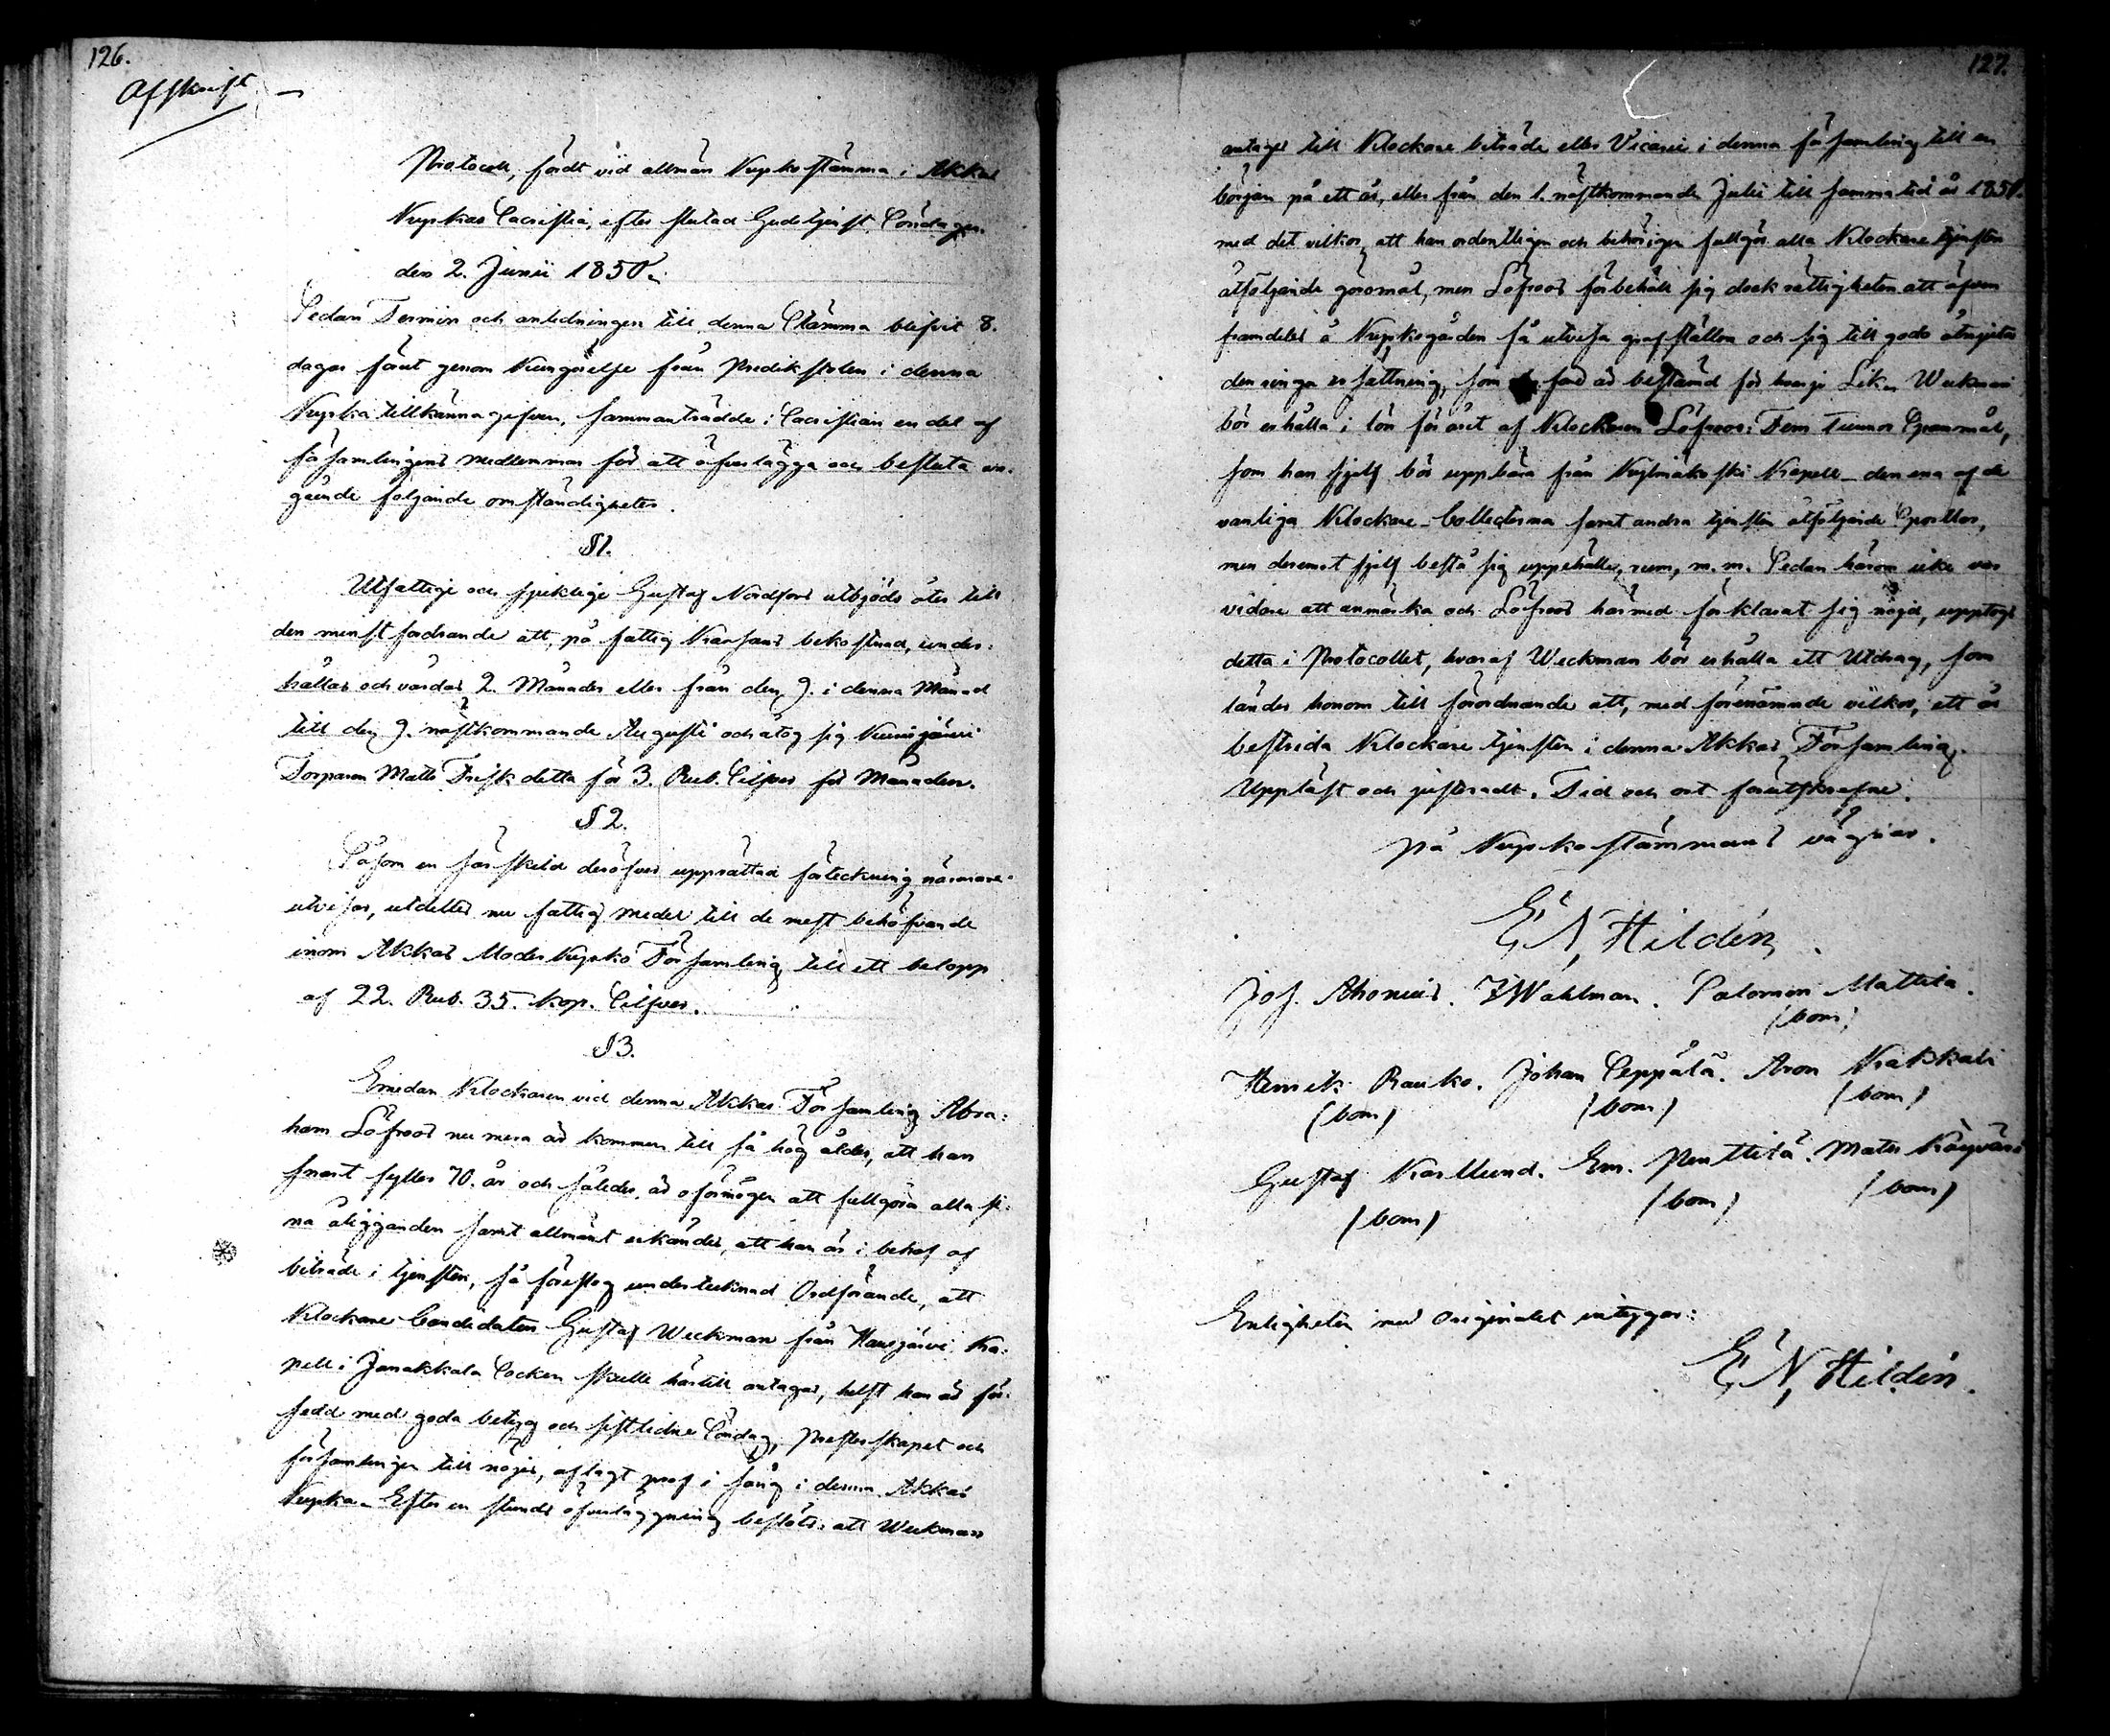 126.
Afskrift
Protocoll, fördt vid allmän Kyrkostämma i Akkas
Kyrkas Sacristia, efter slutad Gudstjenst Söndagen
den 2. Junii 1850.
Sedan Termin och anledningen till denna Stämma blifvit 8.
dagar förut genom Kungörelse från Predikstolen i denna
Kyrka tillkännagifven, sammanträdde i Sacristian en del af
församlingens medlemmar för att öfverlägga och besluta an-
gående följande omständigheter.
§1.
Utfattige och sjuklige Gustaf Nordfors utbjöds åter till
den minst fordrande att, på fattig Kassans bekostnad, under-
hållas och vårdas 2. Månader eller från den 9. i denna Månad
till den 9. nästkommande Augusti och åtog sig Kurisjärvi
Torparen Matts Frisk detta för 3. Rub. Silfver för Månaden.
§2.
Såsom en särskild deröfver upprättad förteckning närmare
utvisar, utdeltes nu fattig medel till de mest behöfvande
inom Akkas Moderkyrko Församling till ett belopp
af 22. Rub. 35. kop. Silfver.
§3.
Emedan Klockaren vid denna Akkas Församling Abra-
ham Löfroos nu mera är kommen till så hög ålder, att han
snart fyller 70. år och således är oförmögen att fullgöra alla si-
na åligganden samt allmänt erkändes, att han är i behof af
biträde i tjensten, så föreslog undertecknad Ordförande, att
Klockare Candidaten Gustaf Weckman från Hausjärvi Ka-
pell i Janakkala Socken skulle härtill antagas, helst han är för-
sedd med goda betyg och sistlidne Söndag, Presterskapet och
församlingen till nöjes, aflagt prof i sång i denna Akkas
Kyrka. Efter en stunds öfverläggning beslöts: att Weckman
127.
antages till Klockare biträde eller Vicarie i denna församling till en
början på ett år, eller från den 1. nästkommande Julii till samma tid år 1851.
med det vilkor, att han ordentligen och behörigen fullgör alla Klockare tjensten
åtföljande göromål, men Löfroos förbehöll sig dock rättigheten att äfven
framdeles å Kyrkogården få utvisa grafställen och sig till godo åtnjuta
den ringa ersättning, som för är bestämd för hvarje Lik. Weckman
bör erhålla i lön för året af Klockaren Löfroos: Fem Tunnor Spannmål,
som han sjelf bör uppbära från Kylmäkoski Kapell – den ena af de
vanliga Klockare-Collecterna samt andra tjensten åtföljande Sportler,
men deremot sjelf bestå sig uppehälle, rum, m.m. Sedan härom icke var
vidare att anmärka och Löfroos härmed förklarat sig nöjd, upptogs
detta i Protocollet, hvaraf Weckman bör erhålla ett Utdrag, som
länder honom till förordnande att, med förenämnde vilkor, ett år
bestrida Klockare tjensten i denna Akkas Församling.
Uppläst och justeradt. Tid och ort förutskrefne.
på Kyrkostämmans vägnar.
E. N. Hildén.
Jos. Ahonius. Wahlman. Salomon Mattila.
(bom)
Henrik Rauko. Johan Seppälä. Aron Krakkali
(bom) (bom) (bom)
Gustaf Karllund. Em. Penttilä. Matts
(bom) (bom) (bom)
Enligheten med Originalet intygar:
E. N. Hildén.